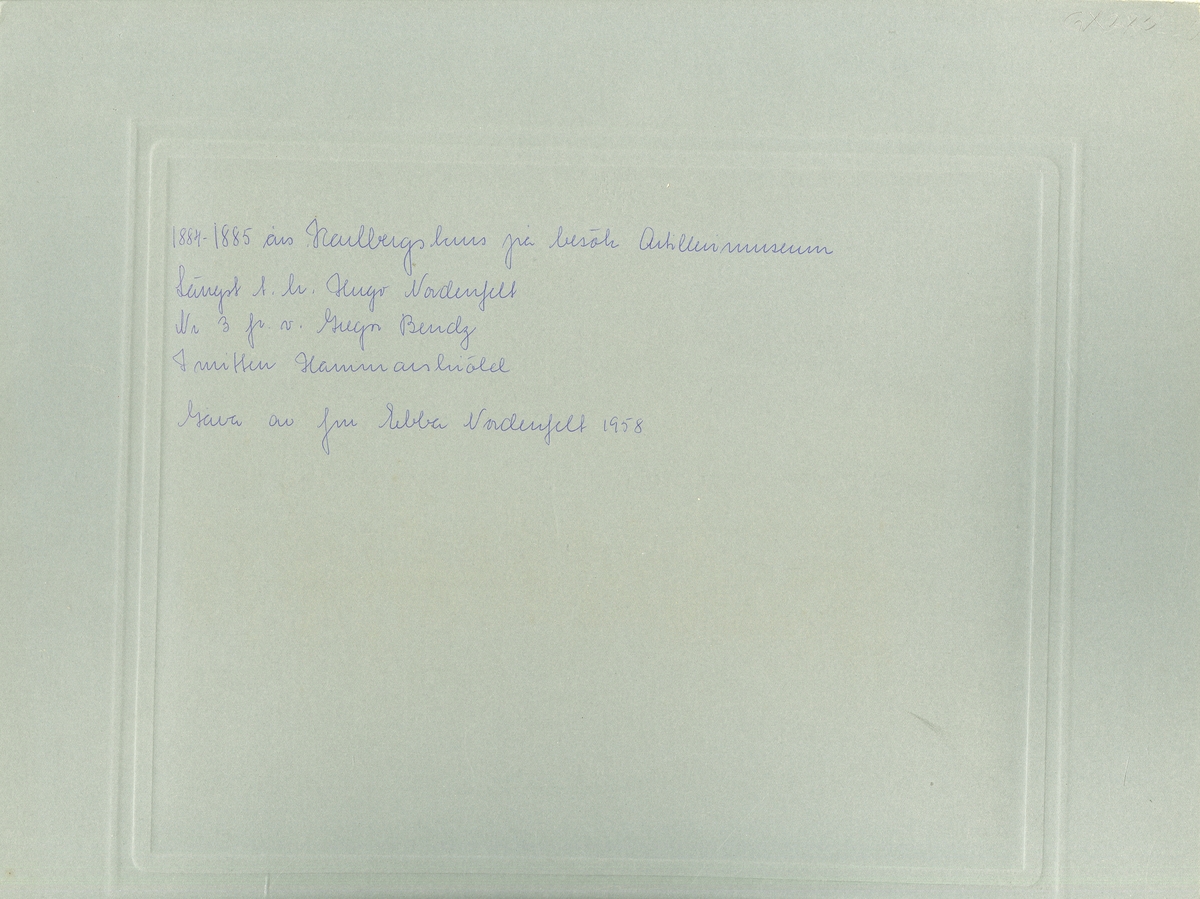 1884-1885 års Karlbergskurs på besök Artillerimuseum
Längst t. h. Hugo Nordenfelt
Nr 3 fr. v. Gregor Bendz
I mitten Hammarskiöld
Gåva av fru Ebba Nordenfelt 1958